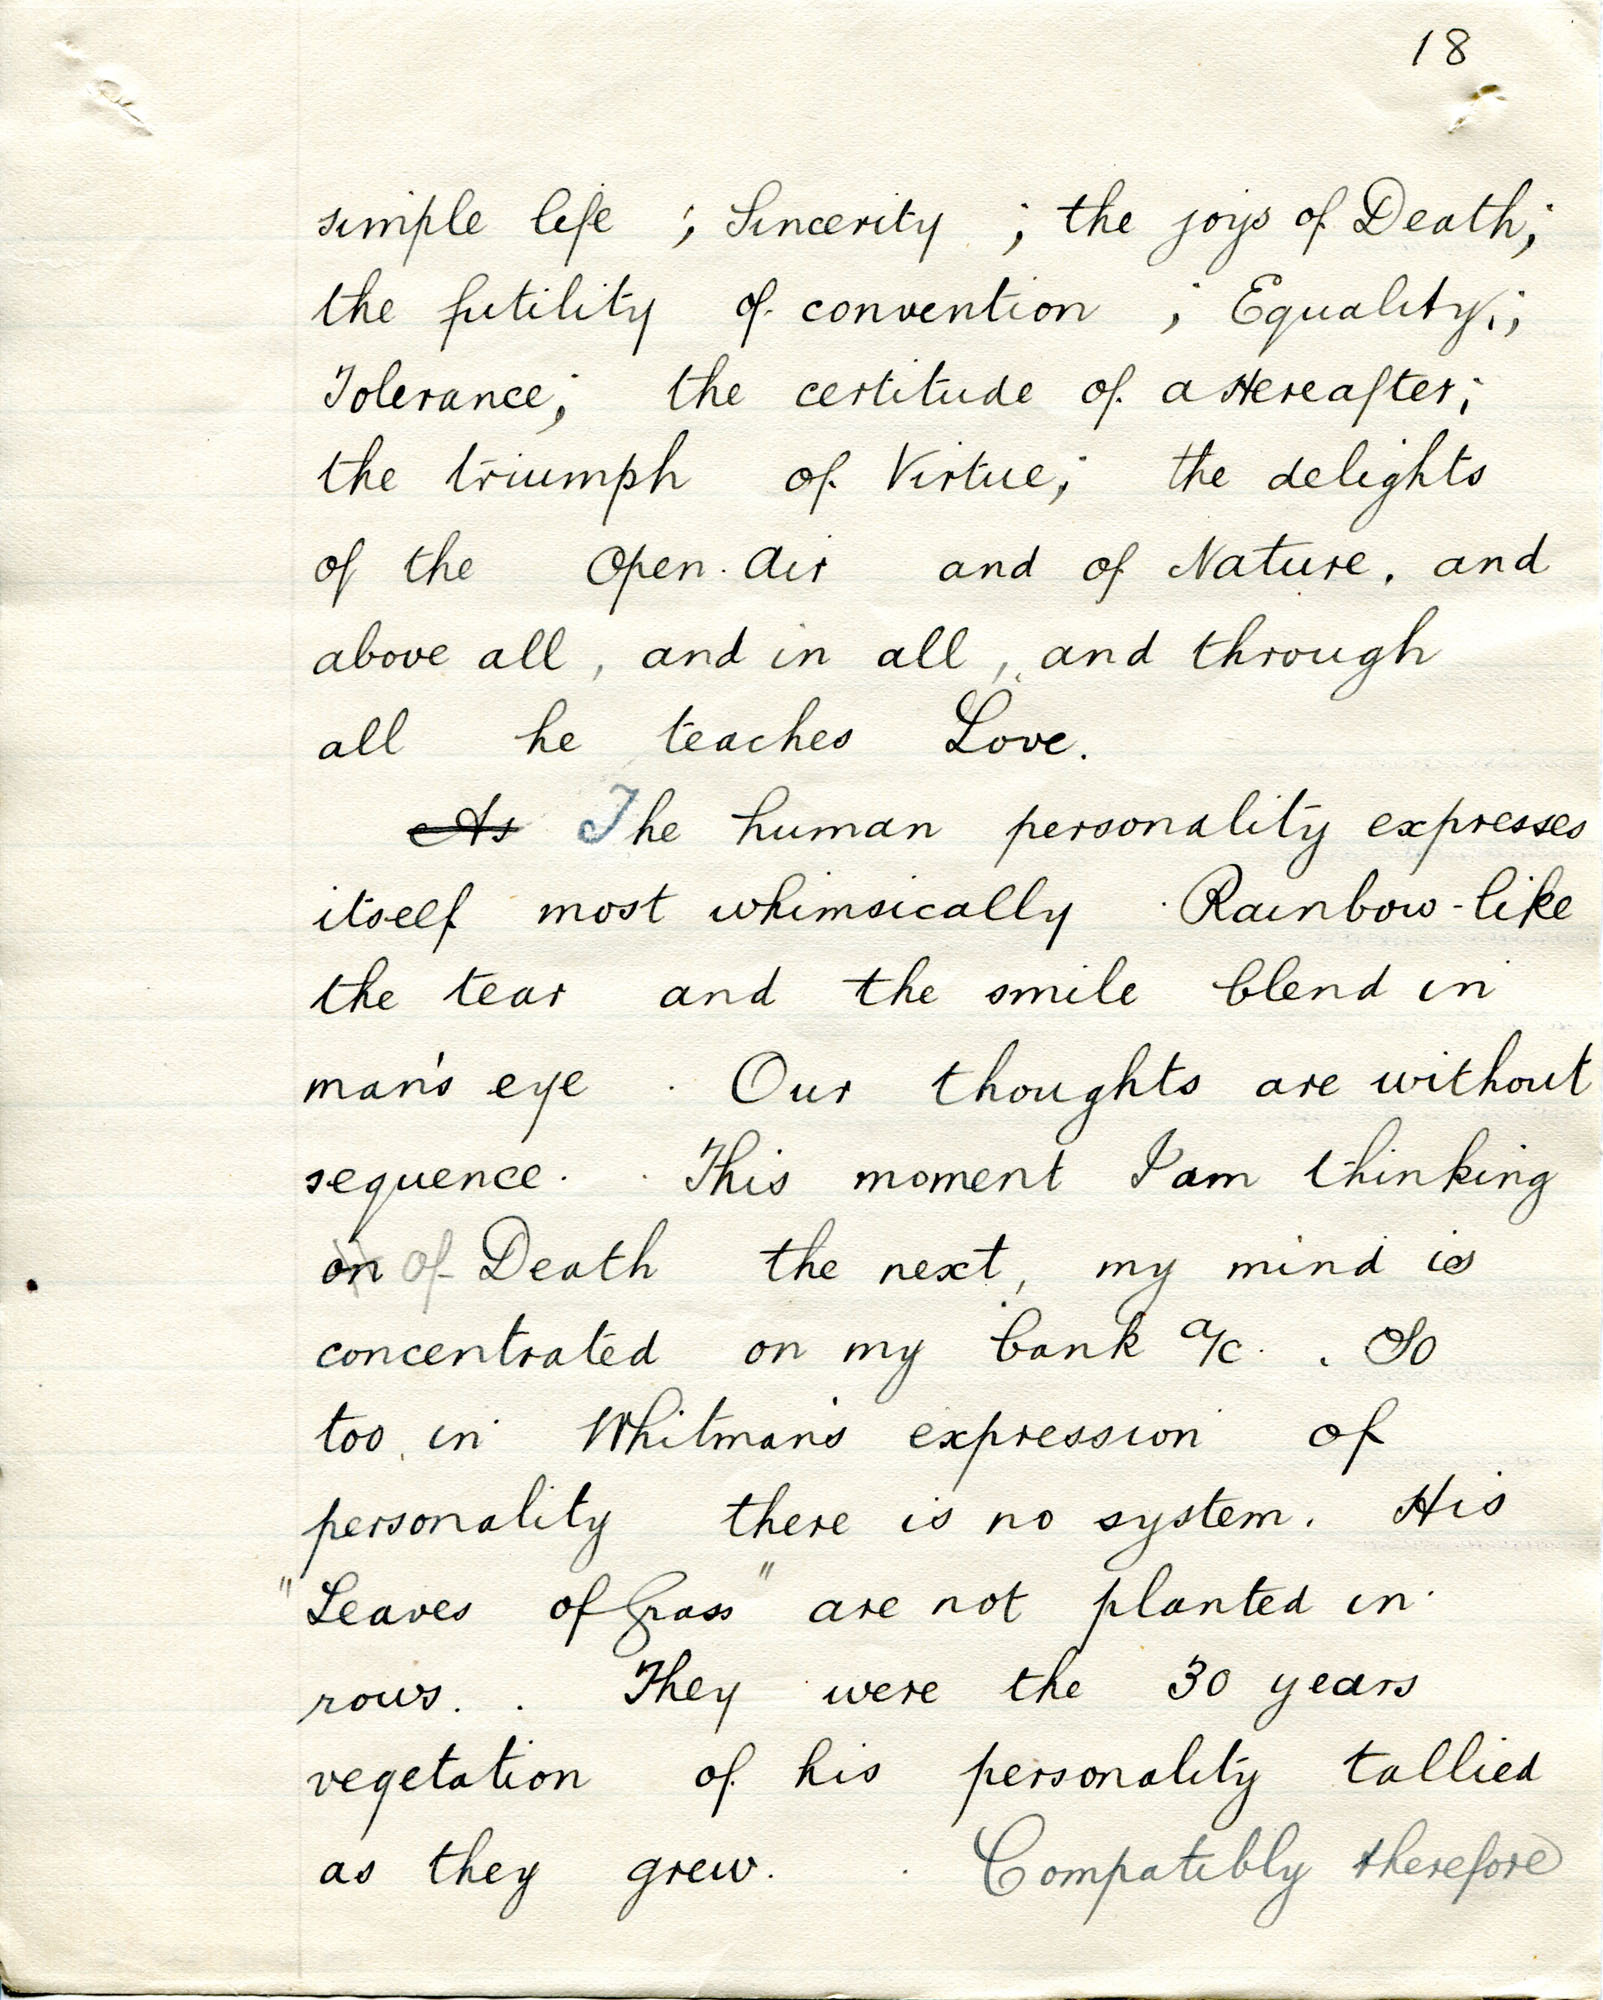 18
simple life ; Sincerity ; the joys of Death;
the futility of convention ; Equality;
Tolerance; the certitude of a Hereafter;
the triumph of Virtue; the delights
of the Open Air and of Nature, and
above all, and in all, and through
all he teaches Love.
As The human personality expresses
itself most whimsically. Rainbow-like
the tear and the smile blend in
man's eye. Our thoughts are without
sequence. This moment I am thinking
on of Death the next, my mind is
concentrated on my bank a/c. So
too, in Whitman's expression of
personality there is no system. His
"Leaves of Grass" are not planted in
rows. They were the 30 years
vegetation of his personality tallied
as they grew. Compatibly therefore